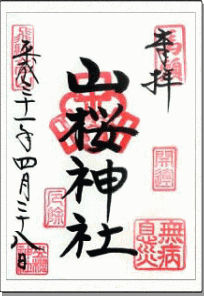 奉拝
開運
無病
息災
山桜神社
厄除
平成三十一年四月二十八日